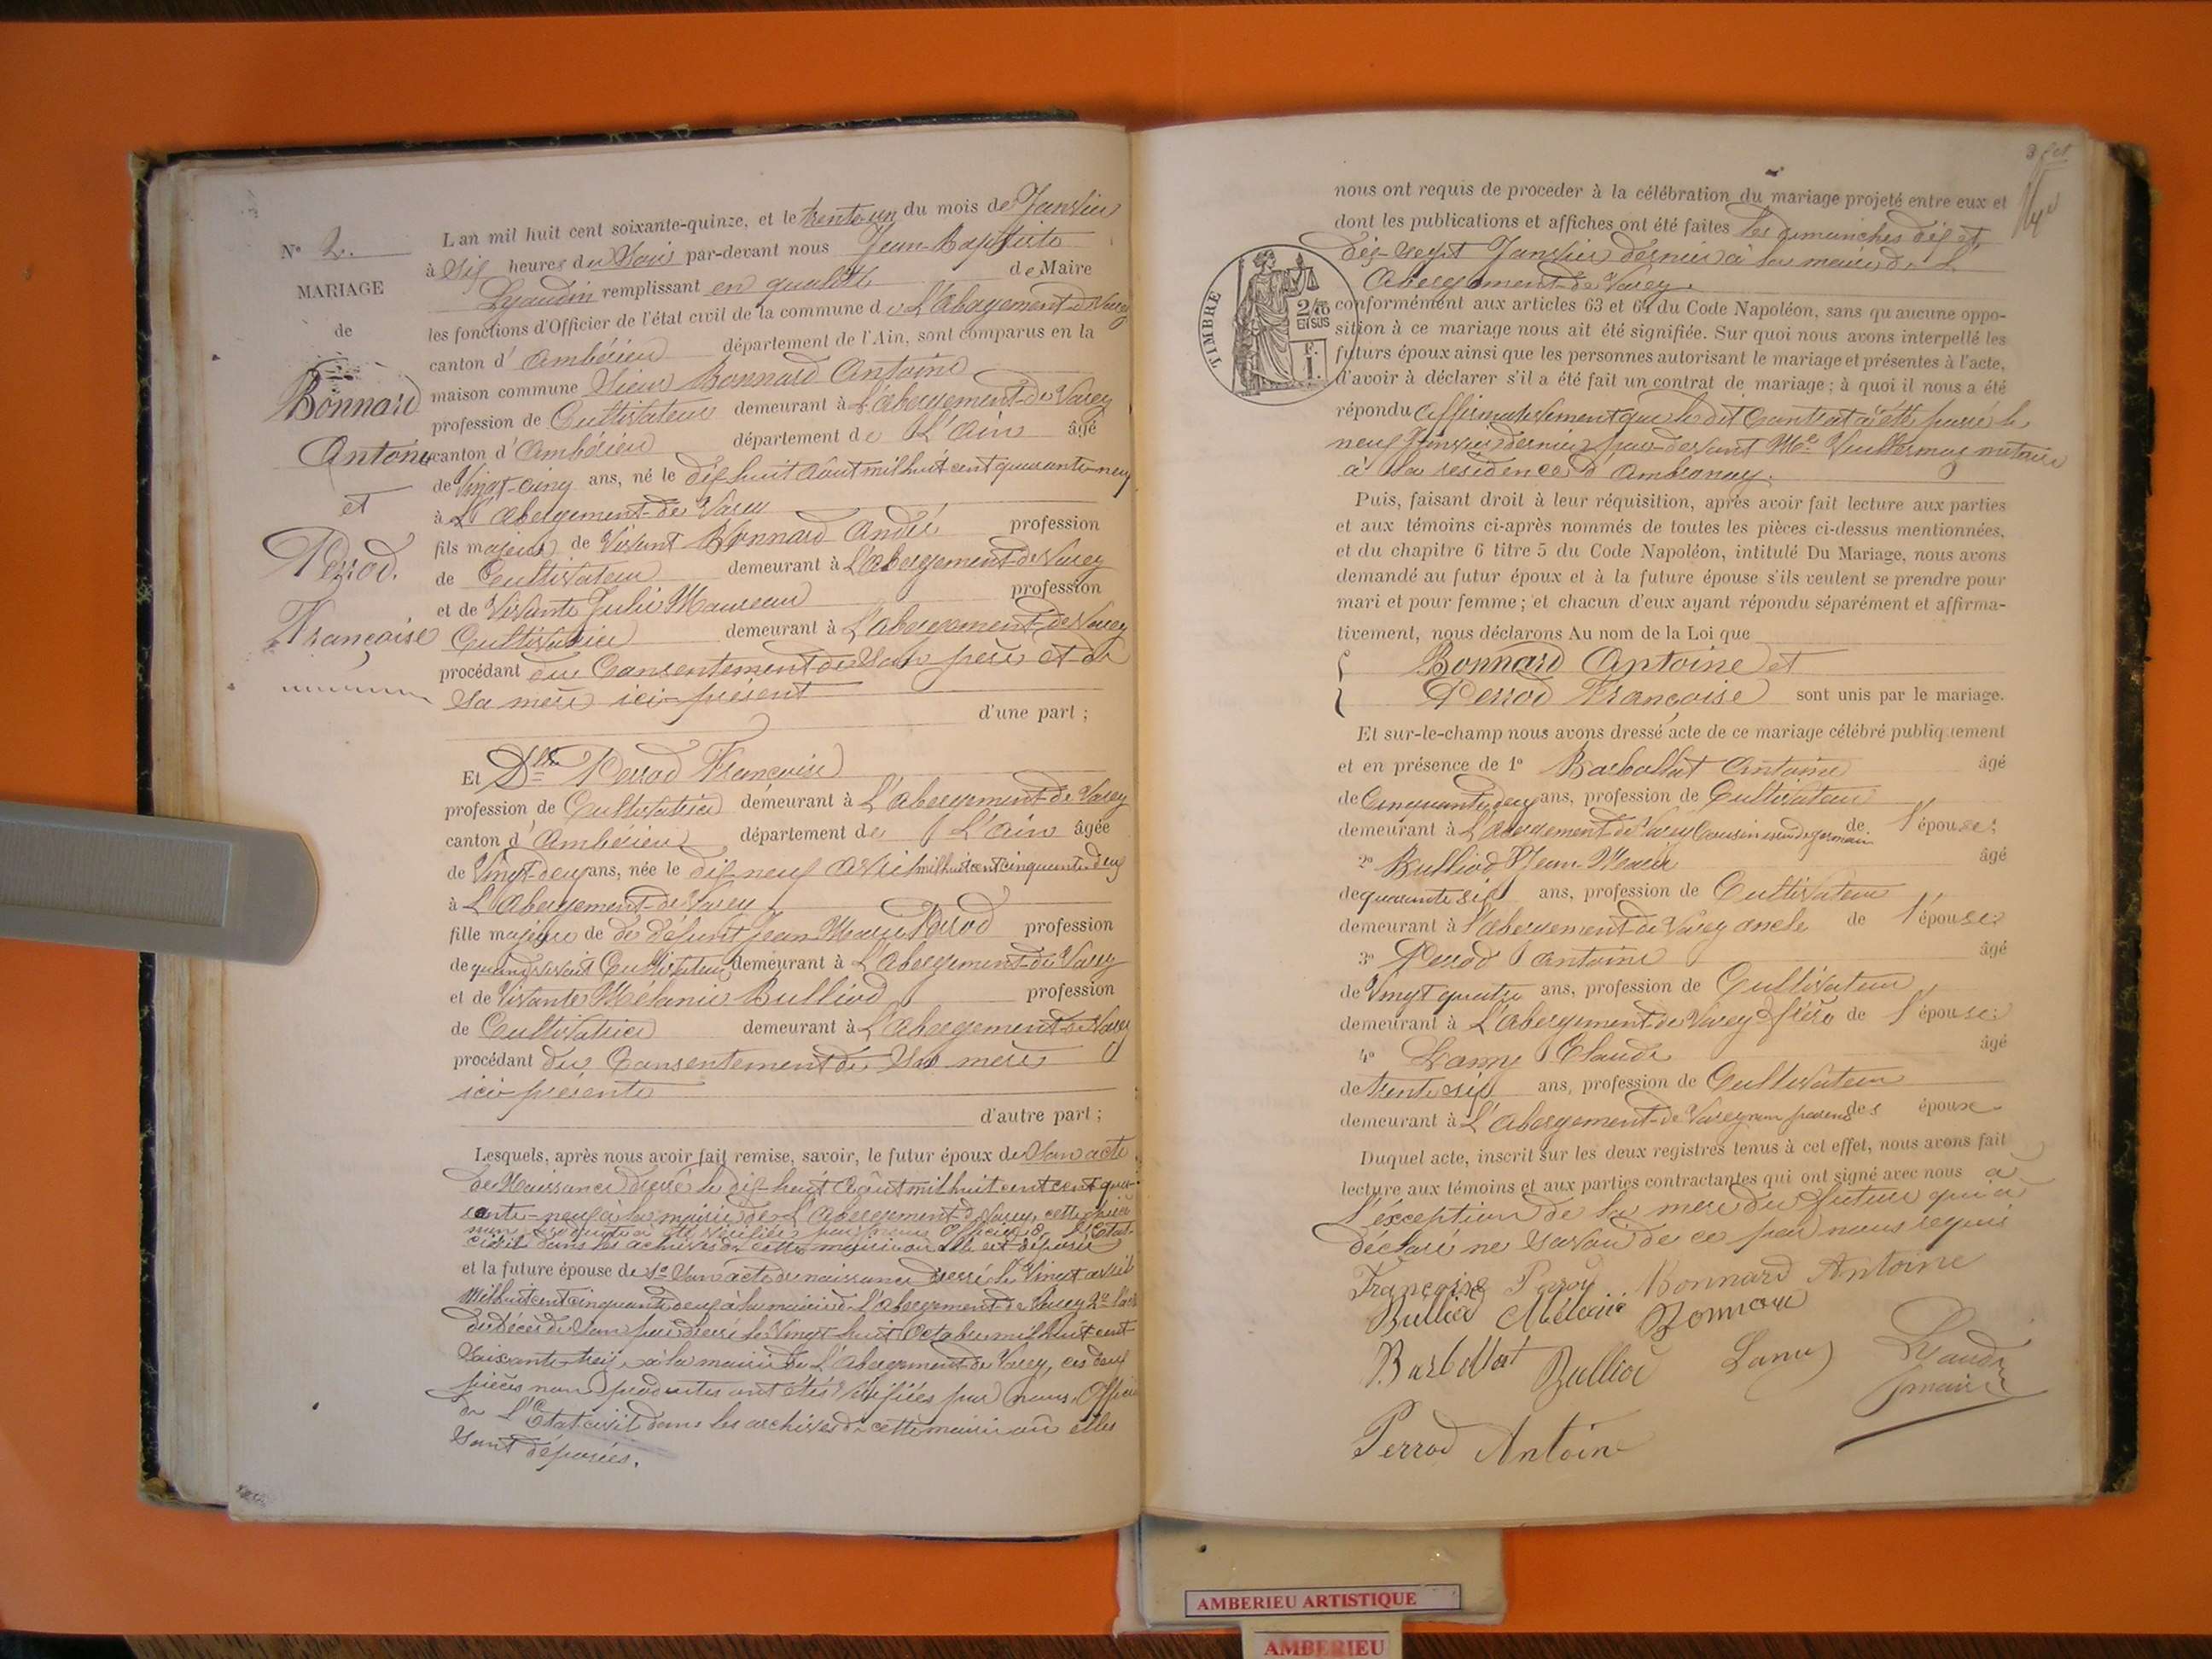 N° 2.
MARIAGE
de
Bonnard
Antoine
et
Perrod.
Françoise
L'an mil huit cent soixante-quinze, et le trente un du mois de Janvier
à Six heures du Soir par-devant nous Jean-Baptiste
Lyaudin remplissant en qualité de Maire
les fonctions d'Officier de l'état civil de la commune de L'Abergement-de Varey
canton d'Ambérieu département de l'Ain, sont comparus en la
maison commune Sieur Bonnard Antoine
profession de Cultivateur demeurant à L'abergement-de Varey
canton d'Ambérieu département de L'Ain âgé
de Vingt-cinq ans, né le dix huit Août mil huit cent quarante-neuf
à L'abergement-de Varey
fils majeur de Vivant Bonnard André profession
de Cultivateur demeurant à L'abergement-de Varey
et de Vivante Julie profession
Cultivatrice demeurant à L'abergement de Varey
procédant du Consentement de Son père et de
Sa mère ici présent
d'une part ;
Et Dlle Perrod Françoise
profession de Cultivatrice demeurant à L'abergement-de Varey
canton d'Ambérieu département de L'Ain âgée
de Vingt-deux ans, née le dix neuf Avril mil huit cent cinquante deux
à L'Abergement-de Varey
fille majeure de de défunt Jean Marie Perrod profession
de quand vivait Cultivateur demeurant à L'abergement-de Varey
et de Vivante Mélanie Bulliod profession
de Cultivatrice demeurant à L'abergement de Varey
procédant du Consentement de Sa mère
ici présente
d'autre part ;
Lesquels, après nous avoir fait remise, savoir, le futur époux de Son acte
de Naissance dressé le dix-huit Août mil huit cent cent qua-
rante-neuf à la mairie de L'Abergement de Varey, cette pièce
non produite a été vérifiée par nous Officier de l'Etat-
civil dans les archives de cette mairie où elle est déposée
et la future épouse de 1° Son acte de naissance dressé le Vingt avril
Mil huit cent cinquante deux à la mairie de L'abergement de Varey 2° l'acte
de décès de Son père dressé le Vingt huit Octobre mil huit cent
Soixante treize à la mairie de L'Abergement de Varey, ces deux
pièces non produites ont étés vérifiées par nous Officier
de L'Etat civil dans les archives de cette mairie où elles
Sont déposées.
3
nous ont requis de procéder à la célébration du mariage projeté entre eux et
dont les publications et affiches ont été faites les dimanches dix et
dix-sept Janvier dernier à la mairie de L'
Abergement-de Varey.
TIMBRE
2/10
EN SUS
F.
1.
conformément aux articles 63 et 64 du Code Napoléon, sans qu'aucune oppo-
sition à ce mariage nous ait été signifiée. Sur quoi nous avons interpellé les
futurs époux ainsi que les personnes autorisant le mariage et présentes à l'acte,
d'avoir à déclarer s'il a été fait un contrat de mariage ; à quoi il nous a été
répondu affirmativement que le dit Contrat a été passé le
neuf Janvier dernier par-devant Me notaire
à la résidence d'Ambronay.
Puis, faisant droit à leur réquisition, après avoir fait lecture aux parties
et aux témoins ci-après nommés de toutes les pièces ci-dessus mentionnées,
et du chapitre 6 titre 5 du Code Napoléon, intitulé Du Mariage, nous avons
demandé au futur époux et à la future épouse s'ils veulent se prendre pour
mari et pour femme ; et chacun d'eux ayant répondu séparément et affirma-
tivement, nous déclarons Au nom de la Loi que
Bonnard Antoine et
Perrod Françoise sont unis par le mariage.
Et sur-le-champ nous avons dressé acte de ce mariage célébré publiquement
et en présence de 1° Barbollat Antoine âgé
de Cinquante deux ans, profession de Cultivateur
demeurant à L'abergement de Varey Cousin issu de germain de l'épouse ;
2° Bulliod Jean-Marie âgé
de quarante six ans, profession de Cultivateur
demeurant à l'abergement de Varey oncle de l'épouse ;
3° Perrod Antoine âgé
de Vingt quatre ans, profession de Cultivateur
demeurant à L'Abergement de Varey frère de l'épouse ;
4° Lamy Claude âgé
de trente six ans, profession de Cultivateur
demeurant à L'abergement-de Varey non parent des époux
Duquel acte, inscrit sur les deux registres tenus à cet effet, nous avons fait
lecture aux témoins et aux parties contractantes qui ont signé avec nous à
l'exception de la mère du futur qui a
déclaré ne savoir de ce par nous requis
Françoise Perrod Bonnard Antoine
Bulliod Mélanie Bonnard
Barbollat Bulliod Lamy Lyaudin
maire
Perrod Antoine
AMBERIEU ARTISTIQUE
AMBERIEU